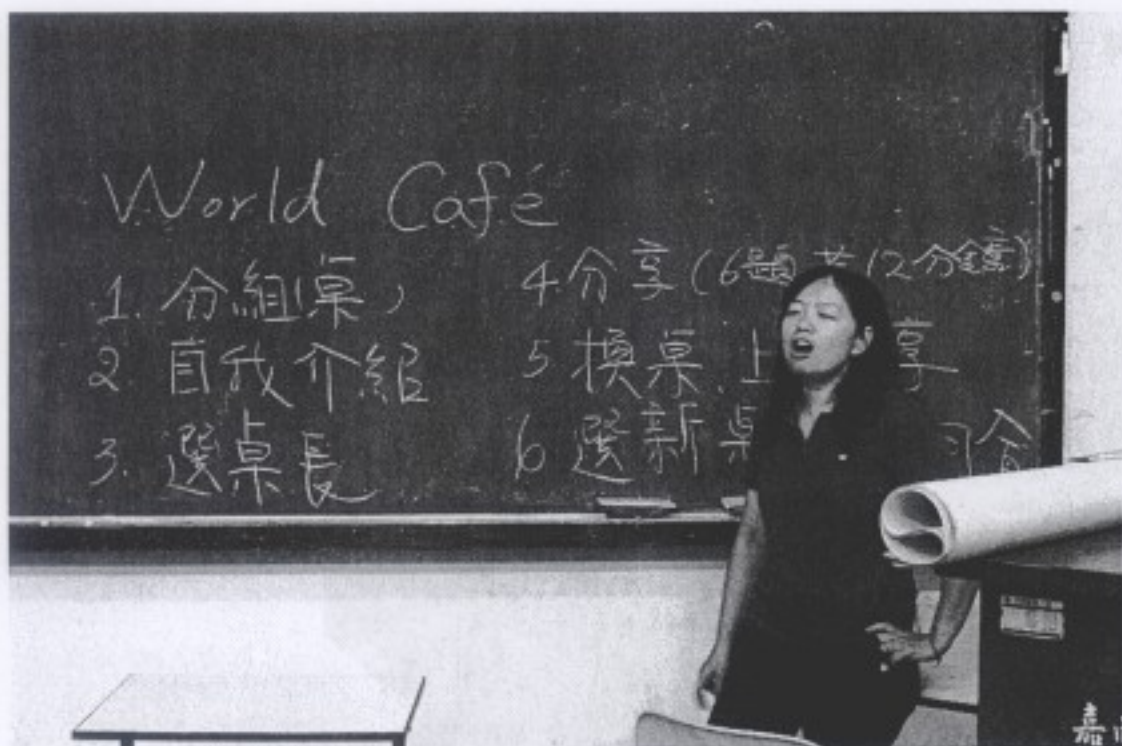 World Café
1. 分組(桌)
2 自我介紹
3. 選桌長
4 分享(6題共12分鐘)
5 換桌、上 享
6 選新桌
嘉